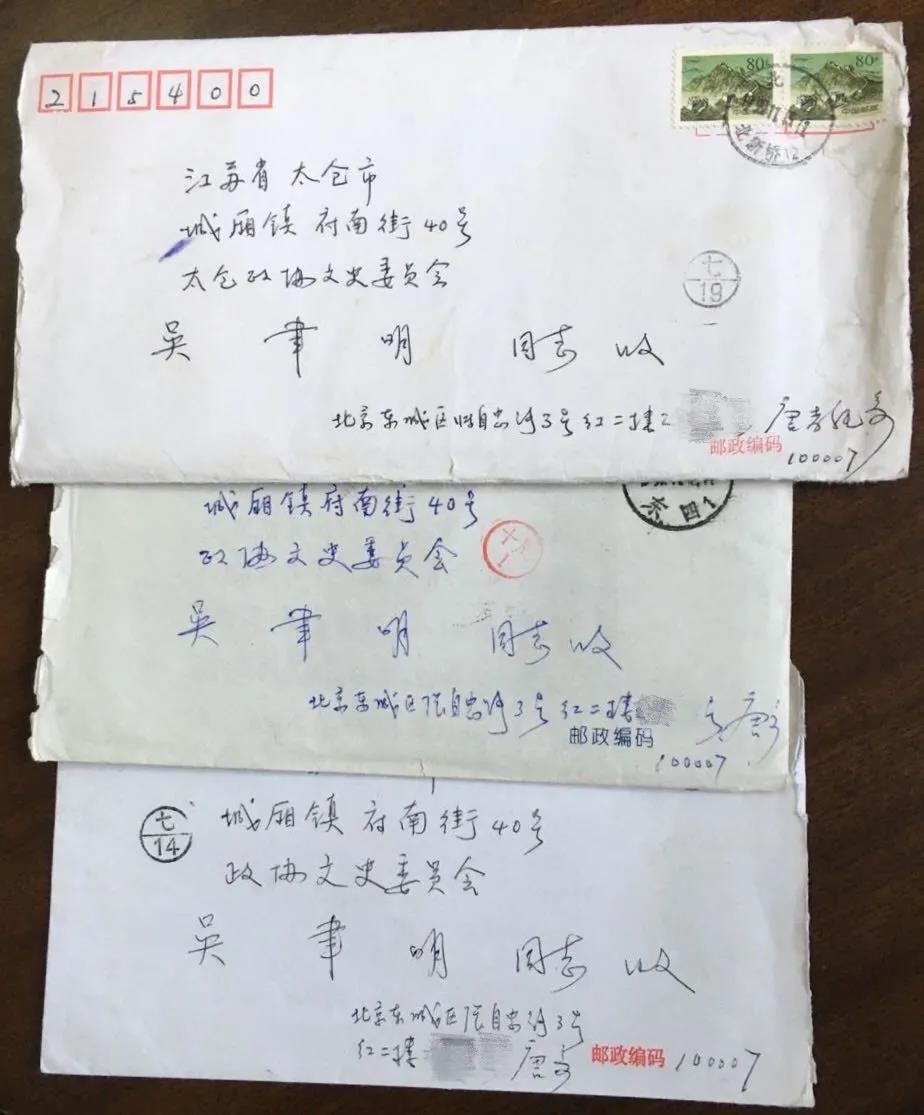 215400
80分 80分
北新桥12
江苏省 太仓市
城厢镇 府南街 40号
太仓政协文史委员会
七
19
吴 聿 明 同志 收
北京东城区张自忠路3号 红二楼2
唐孝纯寄
邮政编码
100007
东四1
城厢镇 府南街 40号
政协文史委员会
吴 聿 明 同志 收
北京东城区张自忠路3号 红二楼
唐寄
邮政编码
100007
七
14
城厢镇 府南街 40号
政协文史委员会
吴 聿 明 同志 收
北京东城区张自忠路3号
红二楼
唐寄
邮政编码 100007